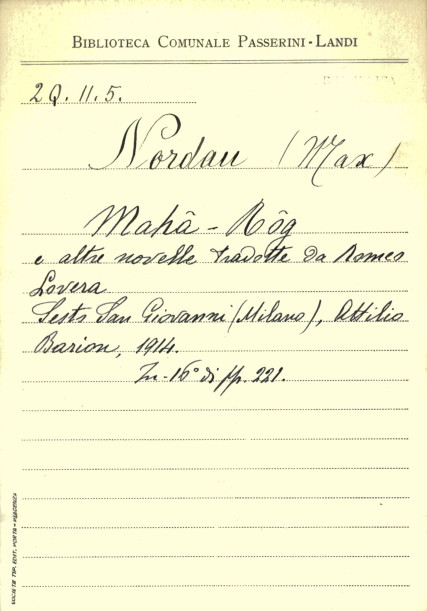 BIBLIOTECA COMUNALE PASSERINI-LANDI
2 Q. II. 5.
Nordau (Max)
Mahâ-Rôg
e altre novelle tradotte da Romeo
Lovera
Sesto San Giovanni (Milano), Attilio
Barion, 1914.
In-16° di pp. 221.
SOCIETÀ TIP. EDIT. PORTA - PIACENZA